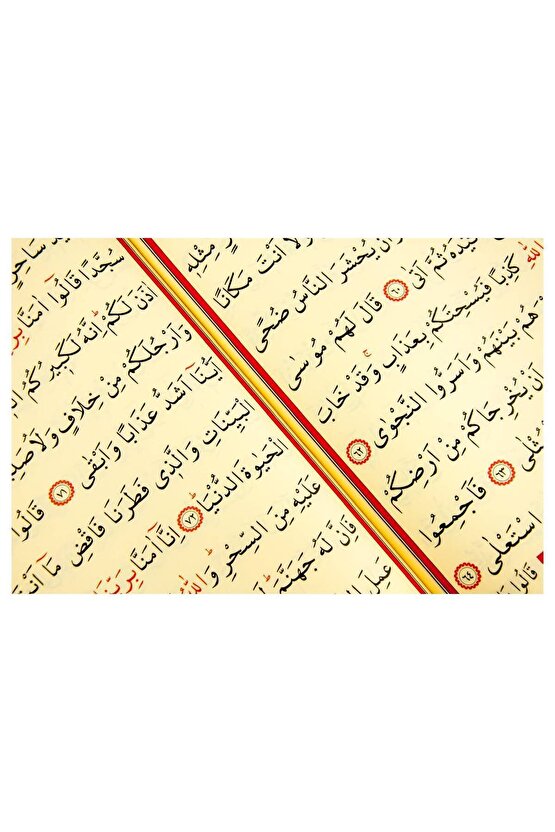 مِثْلِه۪
وَلَٓا اَنْتَ مَكَانًا
اَنْ يُحْشَرَ النَّاسُ ضُحًى
كَيْدَهُ ثُمَّ اَتٰى ٦٠ قَالَ لَهُمْ مُوسٰى
اللّٰهِ كَذِبًا فَيُسْحِتَكُمْ بِعَذَابٍ وَقَدْ خَابَ
هُمْ بَيْنَهُمْ وَاَسَرُّوا النَّجْوٰى ٦٢
اَنْ يُخْرِجَاكُمْ مِنْ اَرْضِكُمْ
ثْلٰى ٦٣ فَاَجْمِعُوا
اسْتَعْلٰى ٦٤
قَالُوا
سَاحِرٍ
سُجَّدًا قَالُٓوا اٰمَنَّا بِرَ
اٰذَنَ لَكُمْ اِنَّهُ لَكَب۪يرُكُمُ
وَاَرْجُلَكُمْ مِنْ خِلَافٍ وَلَاُصَلِّ
اَيُّنَٓا اَشَدُّ عَذَابًا وَاَبْقٰى ٧١ قَالُوا
الْبَيِّنَاتِ وَالَّذ۪ي فَطَرَنَا فَاقْضِ مَٓا اَنْتَ
الْحَيٰوةَ الدُّنْيَا ٧٢ اِنَّٓا اٰمَنَّا بِرَبِّنَا
عَلَيْهِ مِنَ السِّحْرِ وَاللّٰهُ
فَاِنَّ لَهُ جَهَنَّمَ
عَمِلَ